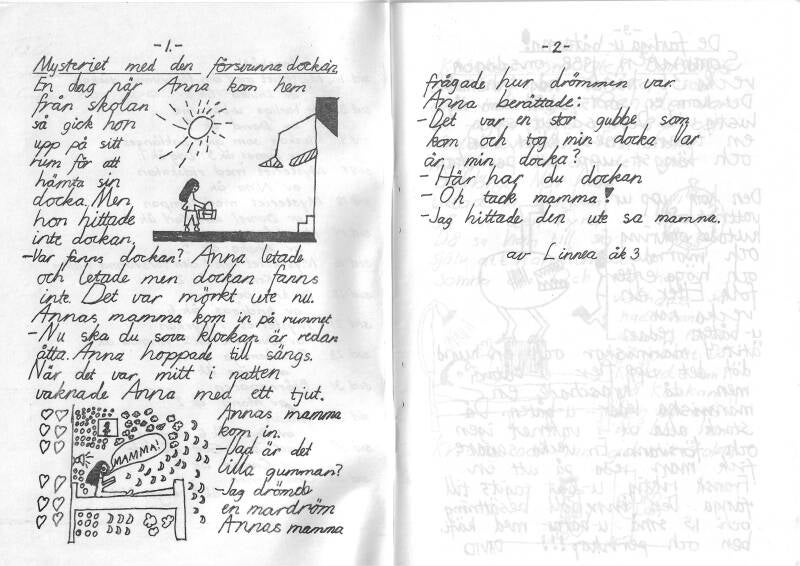 -1.-
Mysteriet med den försvunna dockan
En dag när Anna kom hem
från skolan
så gick hon
upp på sitt
rum för att
hämta sin
docka. Men
hon hittade
inte dockan.
-Var fanns dockan? Anna letade
och letade men dockan fanns
inte. Det var mörkt ute nu.
Annas mamma kom in på rummet
-Nu ska du sova klockan är redan
åtta. Anna hoppade till sängs.
När det var mitt i natten
vaknade Anna med ett tjut.
MAMMA!
Annas mamma
kom in.
-Vad är det
lilla gumman?
-Jag drömde
en mardröm
Annas mamma
-2-
frågade hur drömmen var.
Anna berättade:
-Det var en stor gubbe som
kom och tog min docka var
är min docka?
- Här har du dockan
- Oh tack mamma!
-Jag hittade den ute sa mamma.
av Linnea åk 3